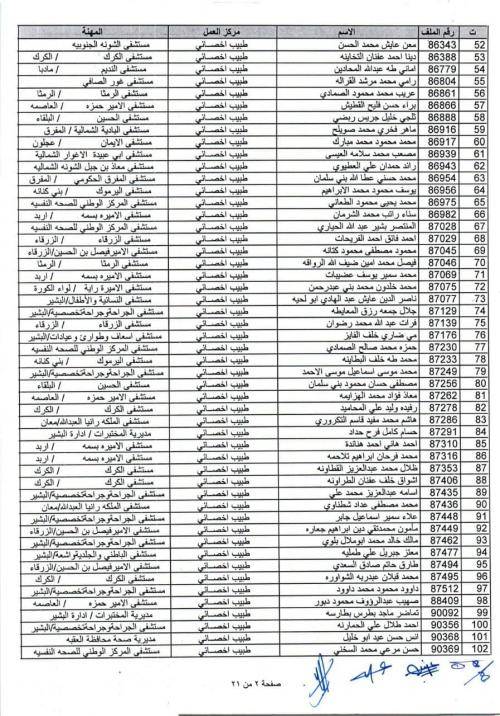 ت رقم الملف الاسم مركز العمل المهنة
52 86343 معن عايش محمد الحسن طبيب اخصائي مستشفى الشونه الجنوبيه
53 86388 دينا احمد عفنان التخاينه طبيب اخصائي مستشفى الكرك / الكرك
54 86779 اماني طه عبدالله المحادين طبيب اخصائي مستشفى النديم / مادبا
55 86804 رامي محمد مرشد القراله طبيب اخصائي مستشفى غور الصافي
56 86861 عريب محمد محمود الصمادي طبيب اخصائي مستشفى الرمثا / الرمثا
57 86866 براء حسن فليح القطيش طبيب اخصائي مستشفى الامير حمزه / العاصمه
58 86888 ثلجي خليل جريس ربضي طبيب اخصائي مستشفى الحسين / البلقاء
59 86916 ماهر فخري محمد صويلح طبيب اخصائي مستشفى البادية الشمالية / المفرق
60 86917 محمد محمود محمد مبارك طبيب اخصائي مستشفى الايمان / عجلون
61 86939 مصعب محمد سلامه العيسى طبيب اخصائي مستشفى ابي عبيدة الاغوار الشمالية
62 86943 رائد حمدان علي العطيوي طبيب اخصائي مستشفى معاذ بن جبل الشونه الشماليه
63 86954 محمد حسني عطا الله بني سلمان طبيب اخصائي مستشفى المفرق الحكومي / المفرق
64 86956 يوسف محمود محمد الابراهيم طبيب اخصائي مستشفى اليرموك / بني كنانه
65 86975 محمد يحيى محمود الطعاني طبيب اخصائي مستشفى المركز الوطني للصحه النفسيه
66 86982 سناء راتب محمد الشرمان طبيب اخصائي مستشفى الاميره بسمه / اربد
67 87028 المنتصر بشير عبد الله الحياري طبيب اخصائي مستشفى المركز الوطني للصحه النفسيه
68 87029 احمد فائق احمد الفريحات طبيب اخصائي مستشفى الزرقاء / الزرقاء
69 87045 محمود مصطفى محمود كتانه طبيب اخصائي مستشفى الاميرفيصل بن الحسين/الزرقاء
70 87046 فيصل محمد امين ضيف الله الرواقه طبيب اخصائي مستشفى الرمثا / الرمثا
71 87069 محمد سمير يوسف عضيبات طبيب اخصائي مستشفى الاميره بسمه / اربد
72 87075 محمد خلدون محمد بني عبدرحمن طبيب اخصائي مستشفى الاميرة راية / لواء الكورة
73 87077 ناصر الدين عايش عبد الهادي ابو لحيه طبيب اخصائي مستشفى النسائية والأطفال/البشير
74 87129 جلال جمعه رزق المعايطه طبيب اخصائي مستشفى الجراحةوجراحةتخصصية/البشير
75 87139 فرات عبد الله محمد رضوان طبيب اخصائي مستشفى الزرقاء / الزرقاء
76 87176 مي ضاري خلف الفايز طبيب اخصائي مستشفى اسعاف وطوارئ وعيادات/البشير
77 87230 حمزه محمد صالح الصمادي طبيب اخصائي مستشفى المركز الوطني للصحه النفسيه
78 87233 محمد طه خلف البطاينه طبيب اخصائي مستشفى اليرموك / بني كنانه
79 87249 محمد موسى اسماعيل موسى الاحمد طبيب اخصائي مستشفى الجراحةوجراحةتخصصية/البشير
80 87256 مصطفى حسان محمود بني سلمان طبيب اخصائي مستشفى الحسين / البلقاء
81 87262 معاذ فؤاد محمد الهزايمه طبيب اخصائي مستشفى الامير حمزه / العاصمه
82 87278 رفيده وليد علي المحاميد طبيب اخصائي مستشفى الكرك / الكرك
83 87286 هاشم محمد مفيد قاسم التكروري طبيب اخصائي مستشفى الملكه رانيا العبدالله/معان
84 87291 حسام كامل فرح حداد طبيب اخصائي مديرية المختبرات / ادارة البشير
85 87310 احمد هاني احمد هنانده طبيب اخصائي مستشفى الاميره بسمه / اربد
86 87316 محمد فرحان ابراهيم تلاحمه طبيب اخصائي مستشفى الاميره بسمه / اربد
87 87353 طلال محمد عبدالعزيز القطاونه طبيب اخصائي مستشفى الكرك / الكرك
88 87406 اشواق خلف عفنان الطراونه طبيب اخصائي مستشفى الكرك / الكرك
89 87435 اسامه عبدالعزيز محمد علي طبيب اخصائي مستشفى الجراحةوجراحةتخصصية/البشير
90 87436 محمد مصطفى عداد شطناوي طبيب اخصائي مستشفى الملكه رانيا العبدالله/معان
91 87448 علاء سمير اسماعيل جابر طبيب اخصائي مستشفى الجراحةوجراحةتخصصية/البشير
92 87449 مأمون محمدتقي دين ابراهيم جعاره طبيب اخصائي مستشفى الاميرفيصل بن الحسين/الزرقاء
93 87462 مالك خالد محمد ابوملال بلوي طبيب اخصائي مستشفى الجراحةوجراحةتخصصية/البشير
94 87477 معتز جبريل علي طمليه طبيب اخصائي مستشفى الباطني والجلديةواشعة/البشير
95 87494 طارق حاتم صادق السعدي طبيب اخصائي مستشفى الاميرفيصل بن الحسين/الزرقاء
96 87495 محمد قبلان عبدربه الشواوره طبيب اخصائي مستشفى الكرك / الكرك
97 87512 داوود محمود محمد داوود طبيب اخصائي مستشفى الجراحةوجراحةتخصصية/البشير
98 88409 صهيب عبدالرؤوف محمود دبور طبيب اخصائي مستشفى الامير حمزه / العاصمه
99 90092 تماضر ماجد بطرس بطارسه طبيب اخصائي مديرية المختبرات / ادارة البشير
100 90356 احمد طلال علي الحمارنه طبيب اخصائي مستشفى الجراحةوجراحةتخصصية/البشير
101 90368 انس حسن عيد ابو خليل طبيب اخصائي مديرية صحة محافظة العقبه
102 90369 حسن مرعي محمد السخني طبيب اخصائي مستشفى المركز الوطني للصحه النفسيه
صفحة ٢ من ٢١